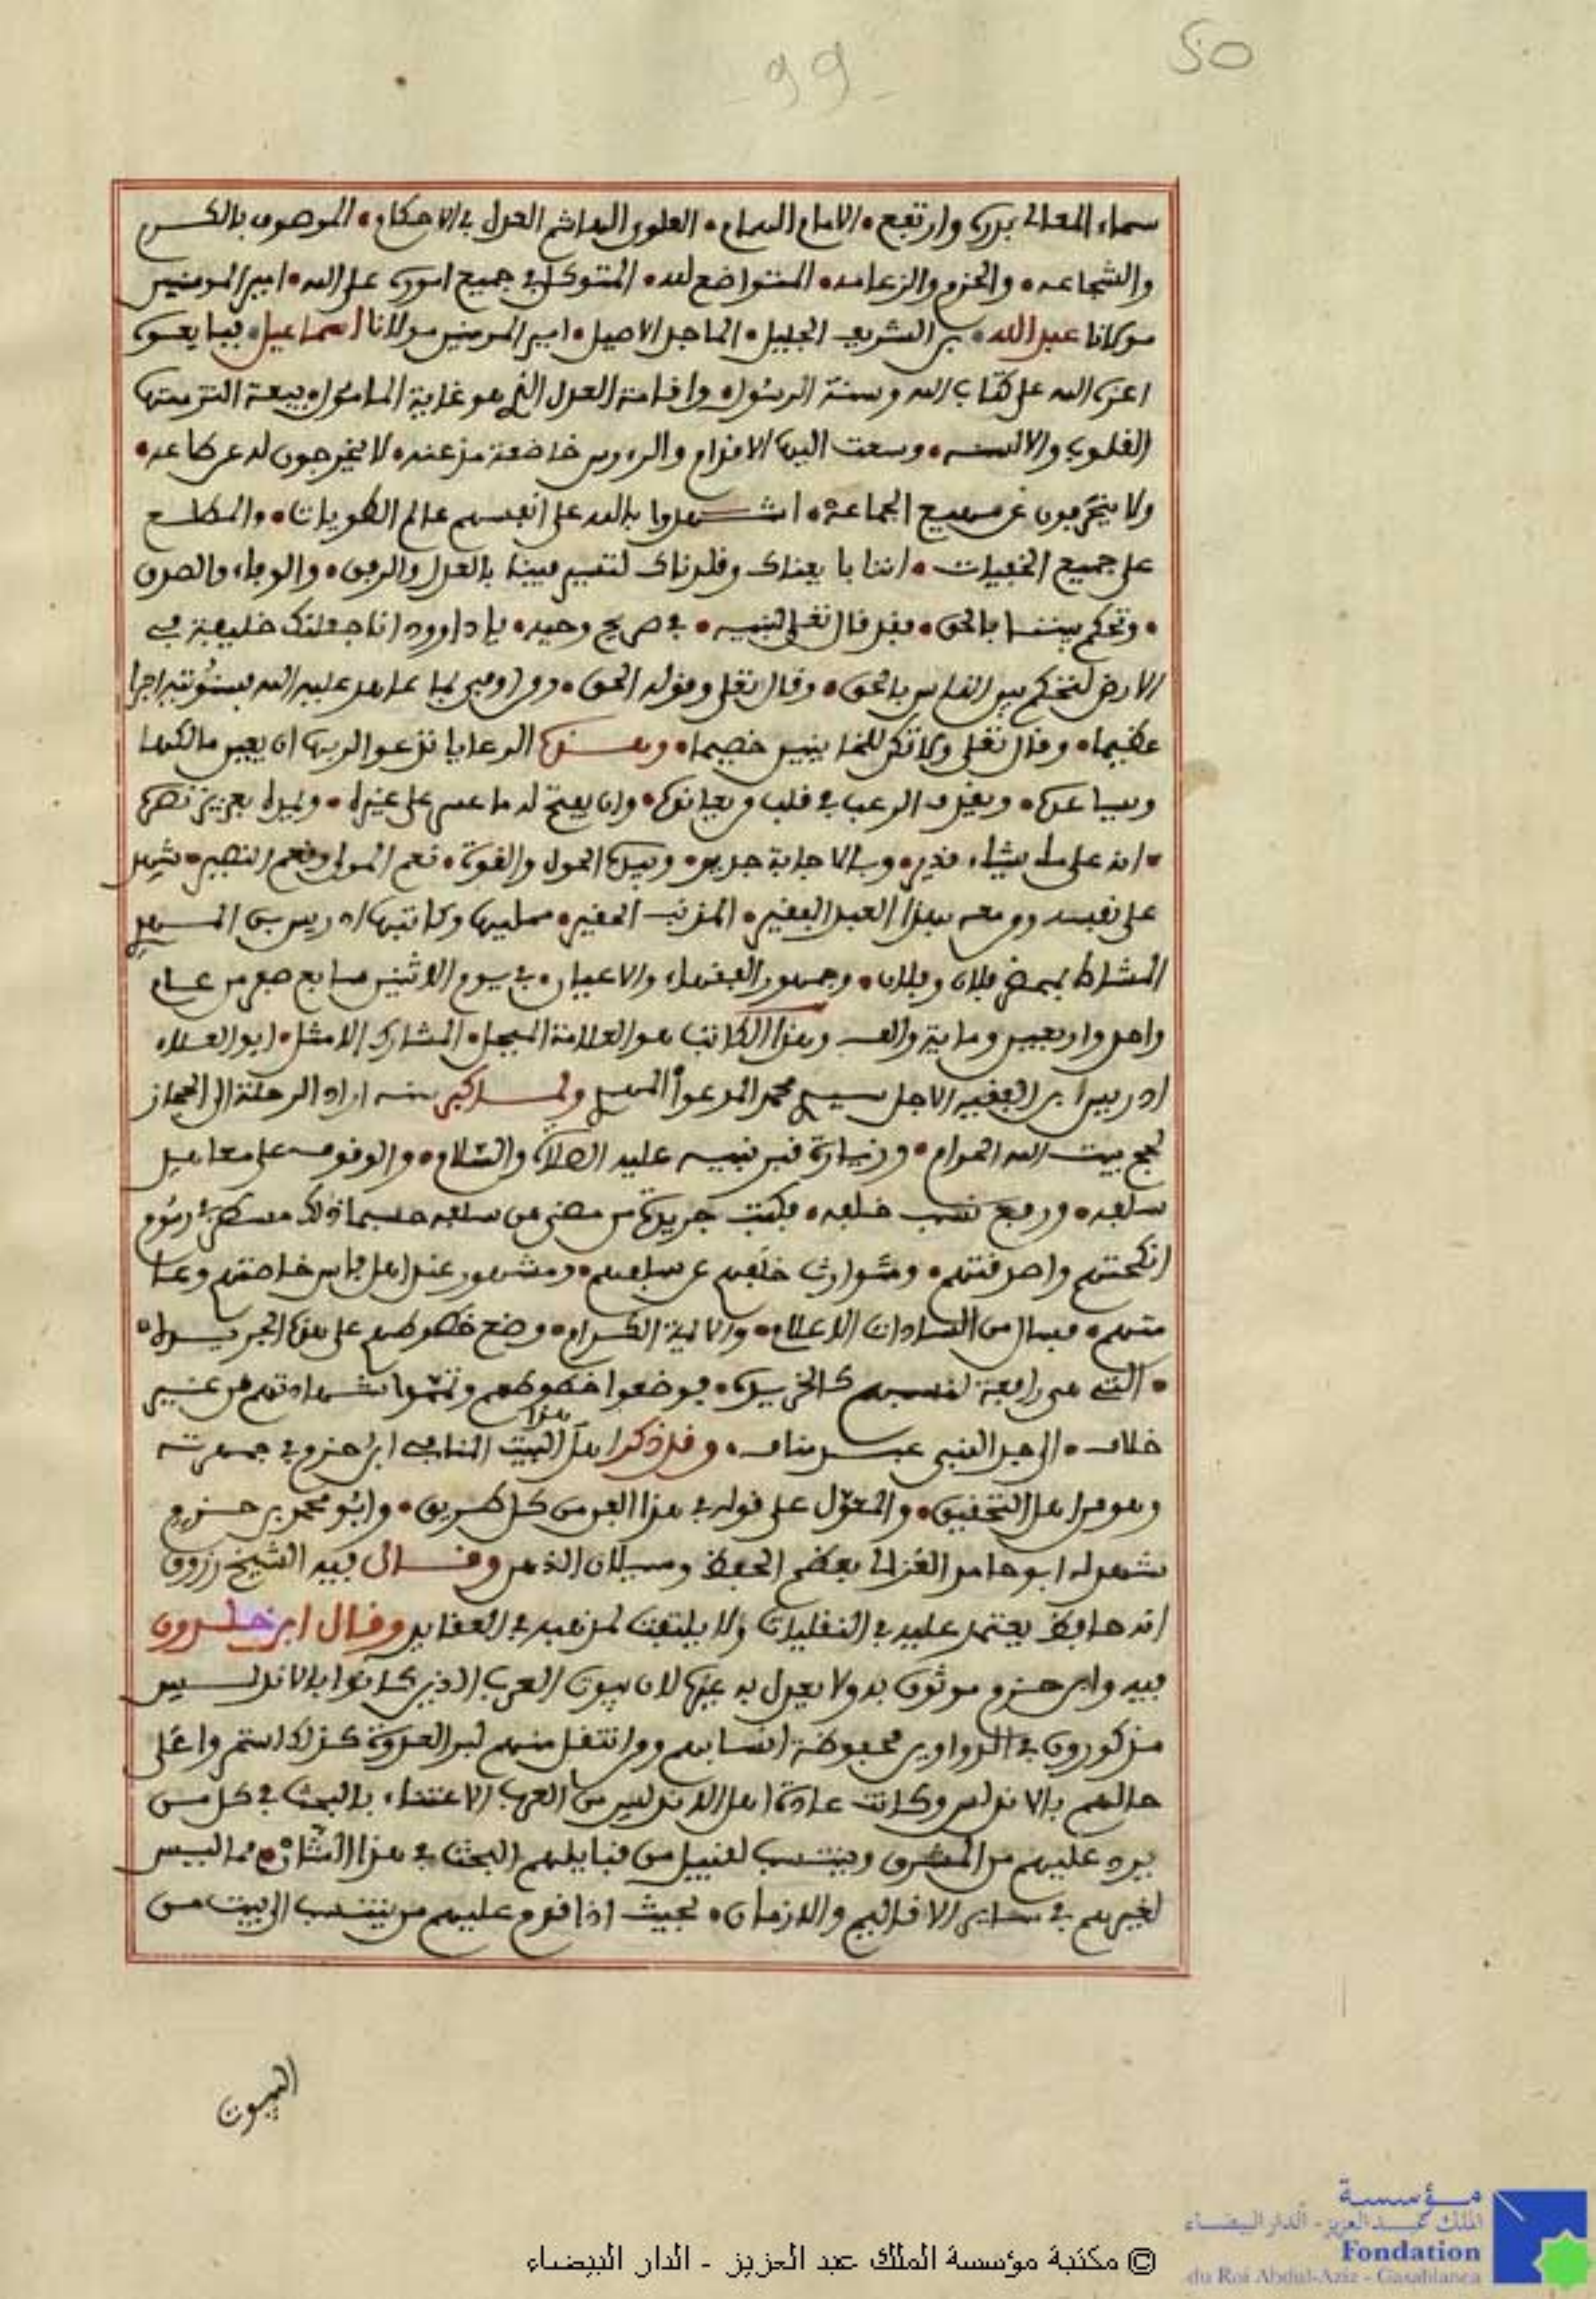 50
99
سماء المعالي بدره وارتفع • الامام الهمام • العلوي الهاشم العدل في الاحكام • الموصوف بالكرم
والشجاعه • والحزم والزعامه • المتواضع لله • المتوكل في جميع اموره على الله • امير المومنين
مولانا عبد الله • بن الشريف الجليل • الماجد الاصيل • امير المومنين مولانا اسماعيل • فبايعوه
اعزه الله على كتاب الله وسنة الرسول • واقامة العدل الذي هو غاية المامول • بيعة التزمتها
القلوب والالسنه • وسعت اليها الاقدام والرءوس خاضعة مذعنه • لا يخرجون له عن طاعه •
ولا ينحرفون عن مهيع الجماعة • اشهدوا بالله على انفسهم عالم الطويات • والمطلع
على جميع الخفيات • اننا بايعناك وقلدناك لتسير فينا بالعدل والرفق • والوفاء والصدق
• وتحكم بيننا بالحق • فقد قال تعلى لنبيه • في صريح وحيه • يا داوود انا جعلنك خليفة في
الارض لتحكم بين الناس بالحق • وقال تعلى وقوله الحق • ومن اوفى بما عاهد عليه الله فسنوتيه اجرا
عظيما • وقال تعلى ولا تكن للخاينين خصيما • وهذه الرعايا تدعوا لربها ان يعين مالكها
ويساعده • ويقذف الرعب في قلب من يعانده • وان يفتح له ما عسر على غيره • ويمده بعزيز نصره
• انه على ما يشاء قدير • وبالاجابة جدير • وبيده الحول والقوة • نعم المولى ونعم النصير • شهد
على نفسه ومن معه بهذا العبد الفقير • المذنب الحقير • ممليها وكاتبها ادريس بن المهدي
المشاط بمحضر فلان وفلان • وجمهور الفقهاء والاعيان • في يوم الاثنين سابع صفر من عام
واحد واربعين وماية والف وهذا الكاتب هو العلامة المبجل • المشارك الامثل • ابو العلاء
ادريس بن الفقيه الاجل سيدي محمد المدعو المهدي ولما كبر سنه اراد الرحلة الى الحجاز
لحج بيت الله الحرام • وزيارة قبر نبيه عليه الصلاة والسلام • والوقوف على معاهد
سلفه • ورفع نسب خلفه • فكتب جريدة من مضى من سلفه حسبما ذلك مسطر في رسوم
انكحتهم واصدقتهم • ومتوارث خلفهم عن سلفهم • ومشهور عند اهل فاس خاصتهم وعا
متهم • فسال من السادات الاعلام • والايمة الكرام • وضع خطوطهم على هذه الجريدة
• التي هي رافعة لنسبهم كالخريدة • فوضعوا خطوطهم وتمموا شهادتهم من غير
خلاف • الى جد النبي عبد مناف • وقد ذكر اهل هذا البيت المنافي ابن حزم في جمهرته
وهو من اهل التحقيق • والمعول على قوله في هذا الفن من كل طريق • وابو محمد بن حزم
شهد له ابو حامد الغزالي بعظم الحفظ وسيلان الذهن وقال فيه الشيخ زروق
انه حافظ يعتمد عليه في النقليات ولا يلتفت لمذهبه في العقايد وقال ابن خلدون
فيه وابن حزم موثوق به ولا يعدل به غيره لان بيوت العرب الذين كانوا بالاندلس
مذكورون في الدواوين محفوظة انسابهم ومن انتقل منهم لبر العدوة كذلك استمروا على
حالهم بالاندلس وكانت عادة اهل الاندلس من العرب الاعتناء بالبحث في كل من
يرد عليهم من المشرق وينتسب لقبيل من قبايلهم البحث في هذا الشان • مما ليس
لغيرهم في ساير الاقاليم والازمان • بحيث اذا قدم عليهم من ينتسب الى بيت من
البيوت
مؤسسة
الملك عبد العزيز - الدار البيضاء
Fondation
du Roi Abdul-Aziz - Casablanca
© مكتبة مؤسسة الملك عبد العزيز - الدار البيضاء